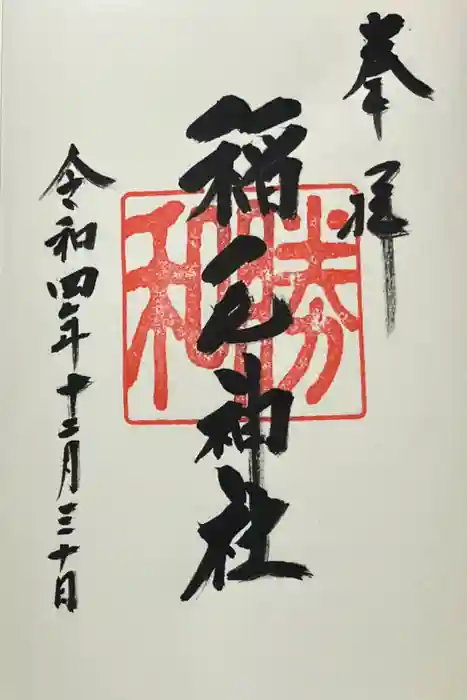 奉拝
稲毛神社
勝和
令和四年十二月三十日